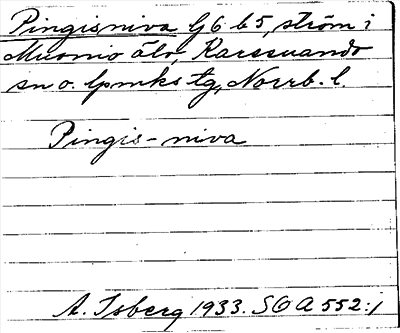 Pingisniva G6 b5, ström i
Muonio älv, Karesuando
sn o. lpmks tg, Norrb. l.
Pingis-niva
A. Isberg 1933. SOA 552:1